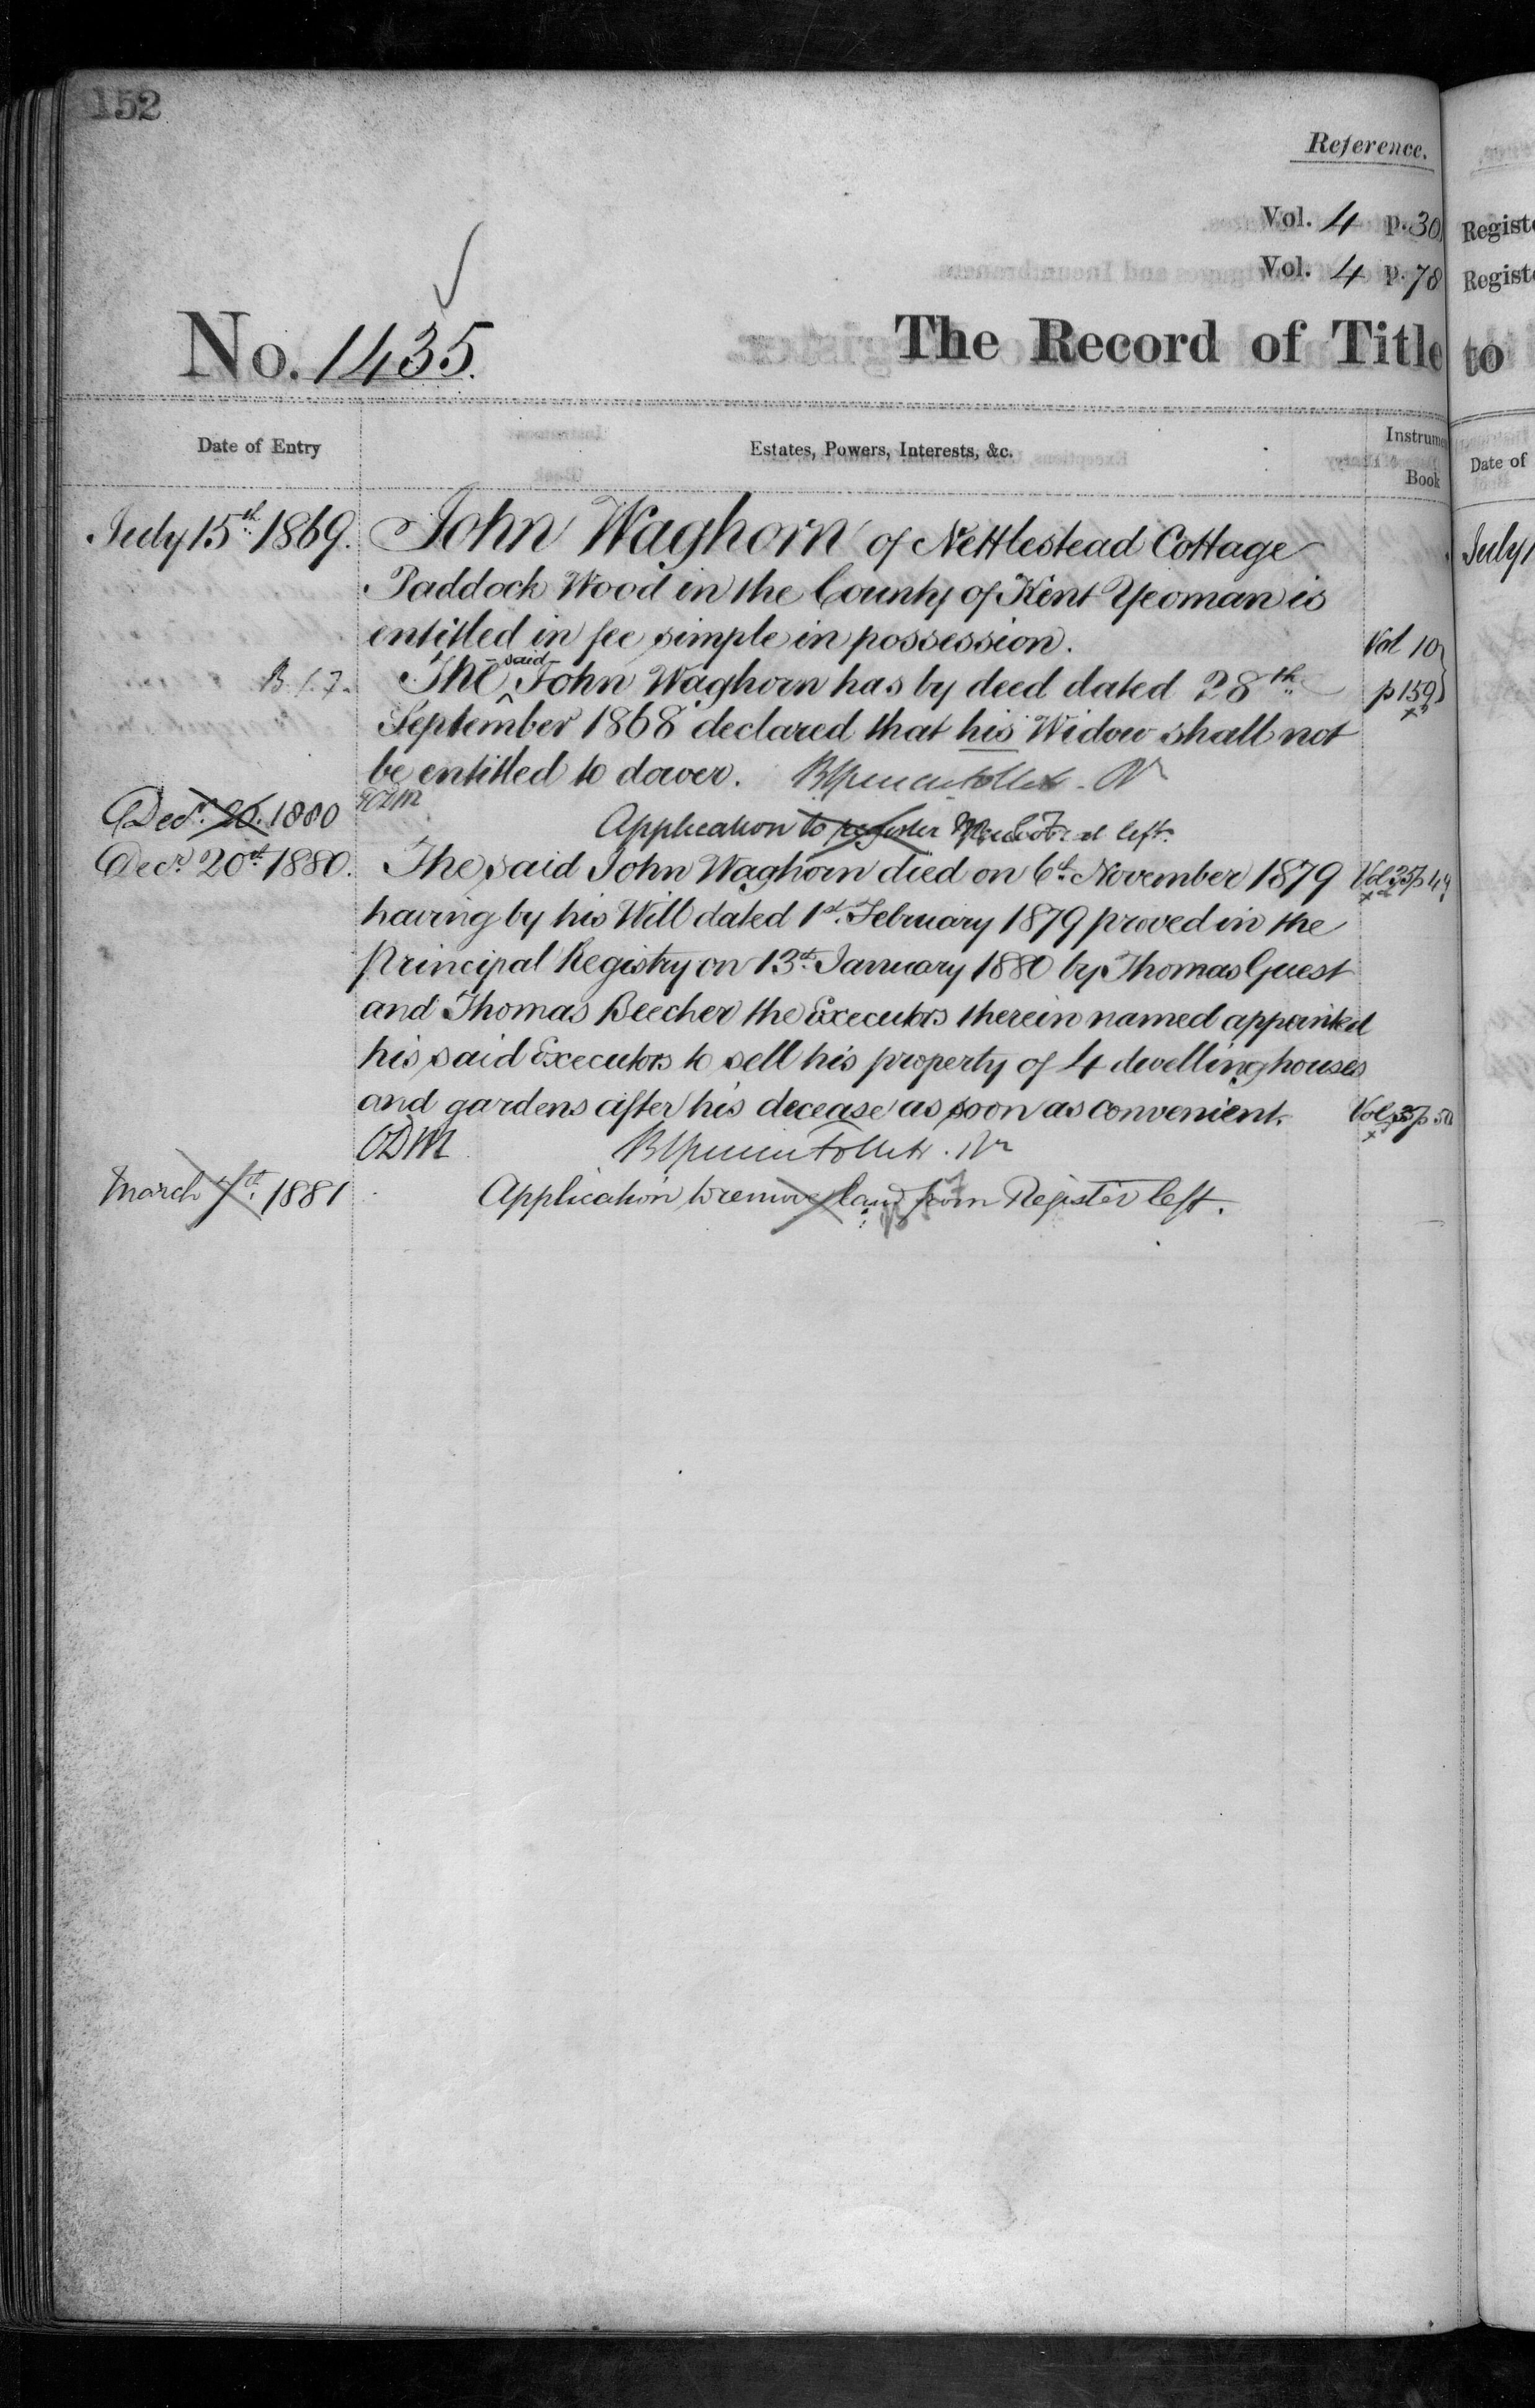 152
Reference.
Vol. 4 p. 30
Vol. 4 p. 78
No. 1435.
The Record of Title
Date of Entry
Estates, Powers, Interests, &c.
Instrume
Book
July 15th 1869. John Waghorn of Nettlestead Cottage
Paddock Wood in the County of Kent Yeoman is
entitled in fee simple in possession. Vol 10
The said John Waghorn has by deed dated 28th p 159
September 1868 declared that his Widow shall not
be entitled to dower.
Decr. 20. 1880 Application to register left.
Decr. 20th 1880. The said John Waghorn died on 6th November 1879 Vol 25 p 49
having by his Will dated 1st February 1879 proved in the
Principal Registry on 13th January 1880 by Thomas Guest
and Thomas Beecher the Executors therein named appointed
his said Executors to sell his property of 4 dwelling houses
and gardens after his decease as soon as convenient. Vol 25 p 50
ODM
March 7th 1881 Application to remove land from Register left.
Registe
Registe
to
Date of
July 1